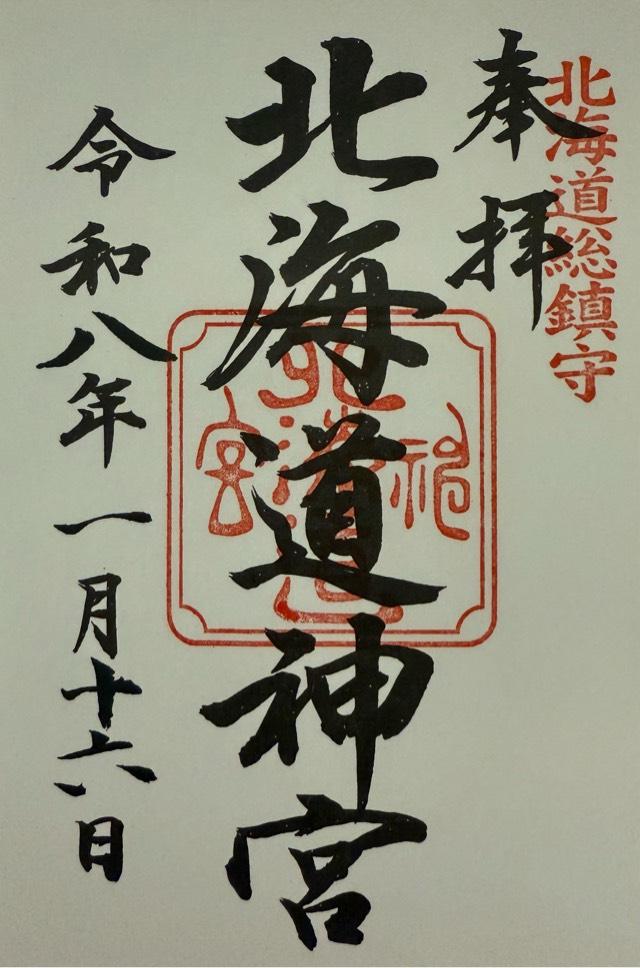 北海道総鎮守
奉拝
北海道神宮
北海道神宮
令和八年一月十六日